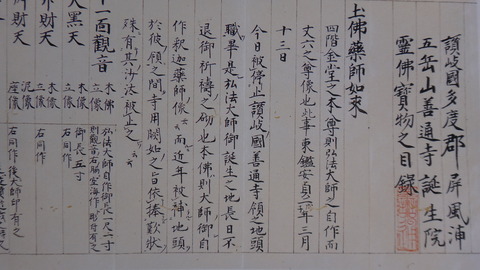 讃岐國多度郡屏風浦
五岳山善通寺誕生院
靈佛寳物之目錄
土佛藥師如來
四階金堂之本尊則弘法大師之自作而
丈六之尊像也此事東鑑安貞二年三月
十三日
今日被停止讃岐國善通寺領之地頭
職畢是弘法大師御誕生之地長日不
退御祈禱之砌也本佛則大師御自
作釈迦藥師像云云而近年被補地頭
於彼領之間寺用闕如之旨依捧歎状
殊有其沙汰被止之
十一面觀音
木佛
立像
弘法大師自作御長一尺一寸
則観音右脇空海作ト彫付有之
大黒天
木
立像
御長五寸
右同作
木
立像
右同作
財天
泥像
座像
右同作後大師印有之